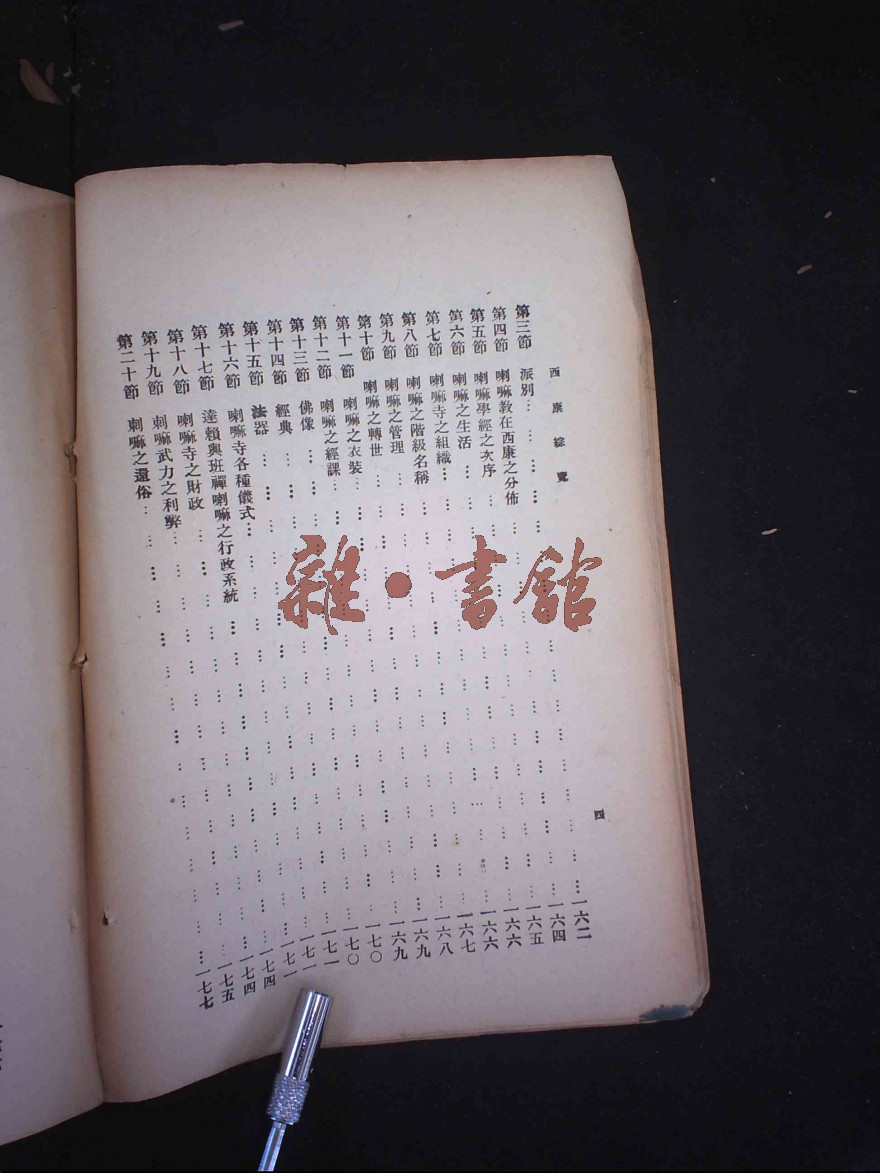 西康綜覽
四
第三節 派別……一六二
第四節 喇嘛教在西康之分佈……一六四
第五節 喇嘛學經之次序……一六五
第六節 喇嘛之生活……一六六
第七節 喇嘛寺之組織……一六六
第八節 喇嘛之階級名稱……一六七
第九節 喇嘛之管理……一六八
第十節 喇嘛之轉世……一六九
第十一節 喇嘛之衣裝……一六九
第十二節 喇嘛之經課……一七〇
第十三節 佛像……一七〇
第十四節 經典……一七一
第十五節 法器……一七一
第十六節 喇嘛寺各種儀式……一七一
第十七節 達賴與班禪喇嘛之行政系統……一七四
第十八節 喇嘛寺之財政……一七四
第十九節 喇嘛武力之利弊……一七五
第二十節 喇嘛之還俗……一七七
雜·書館